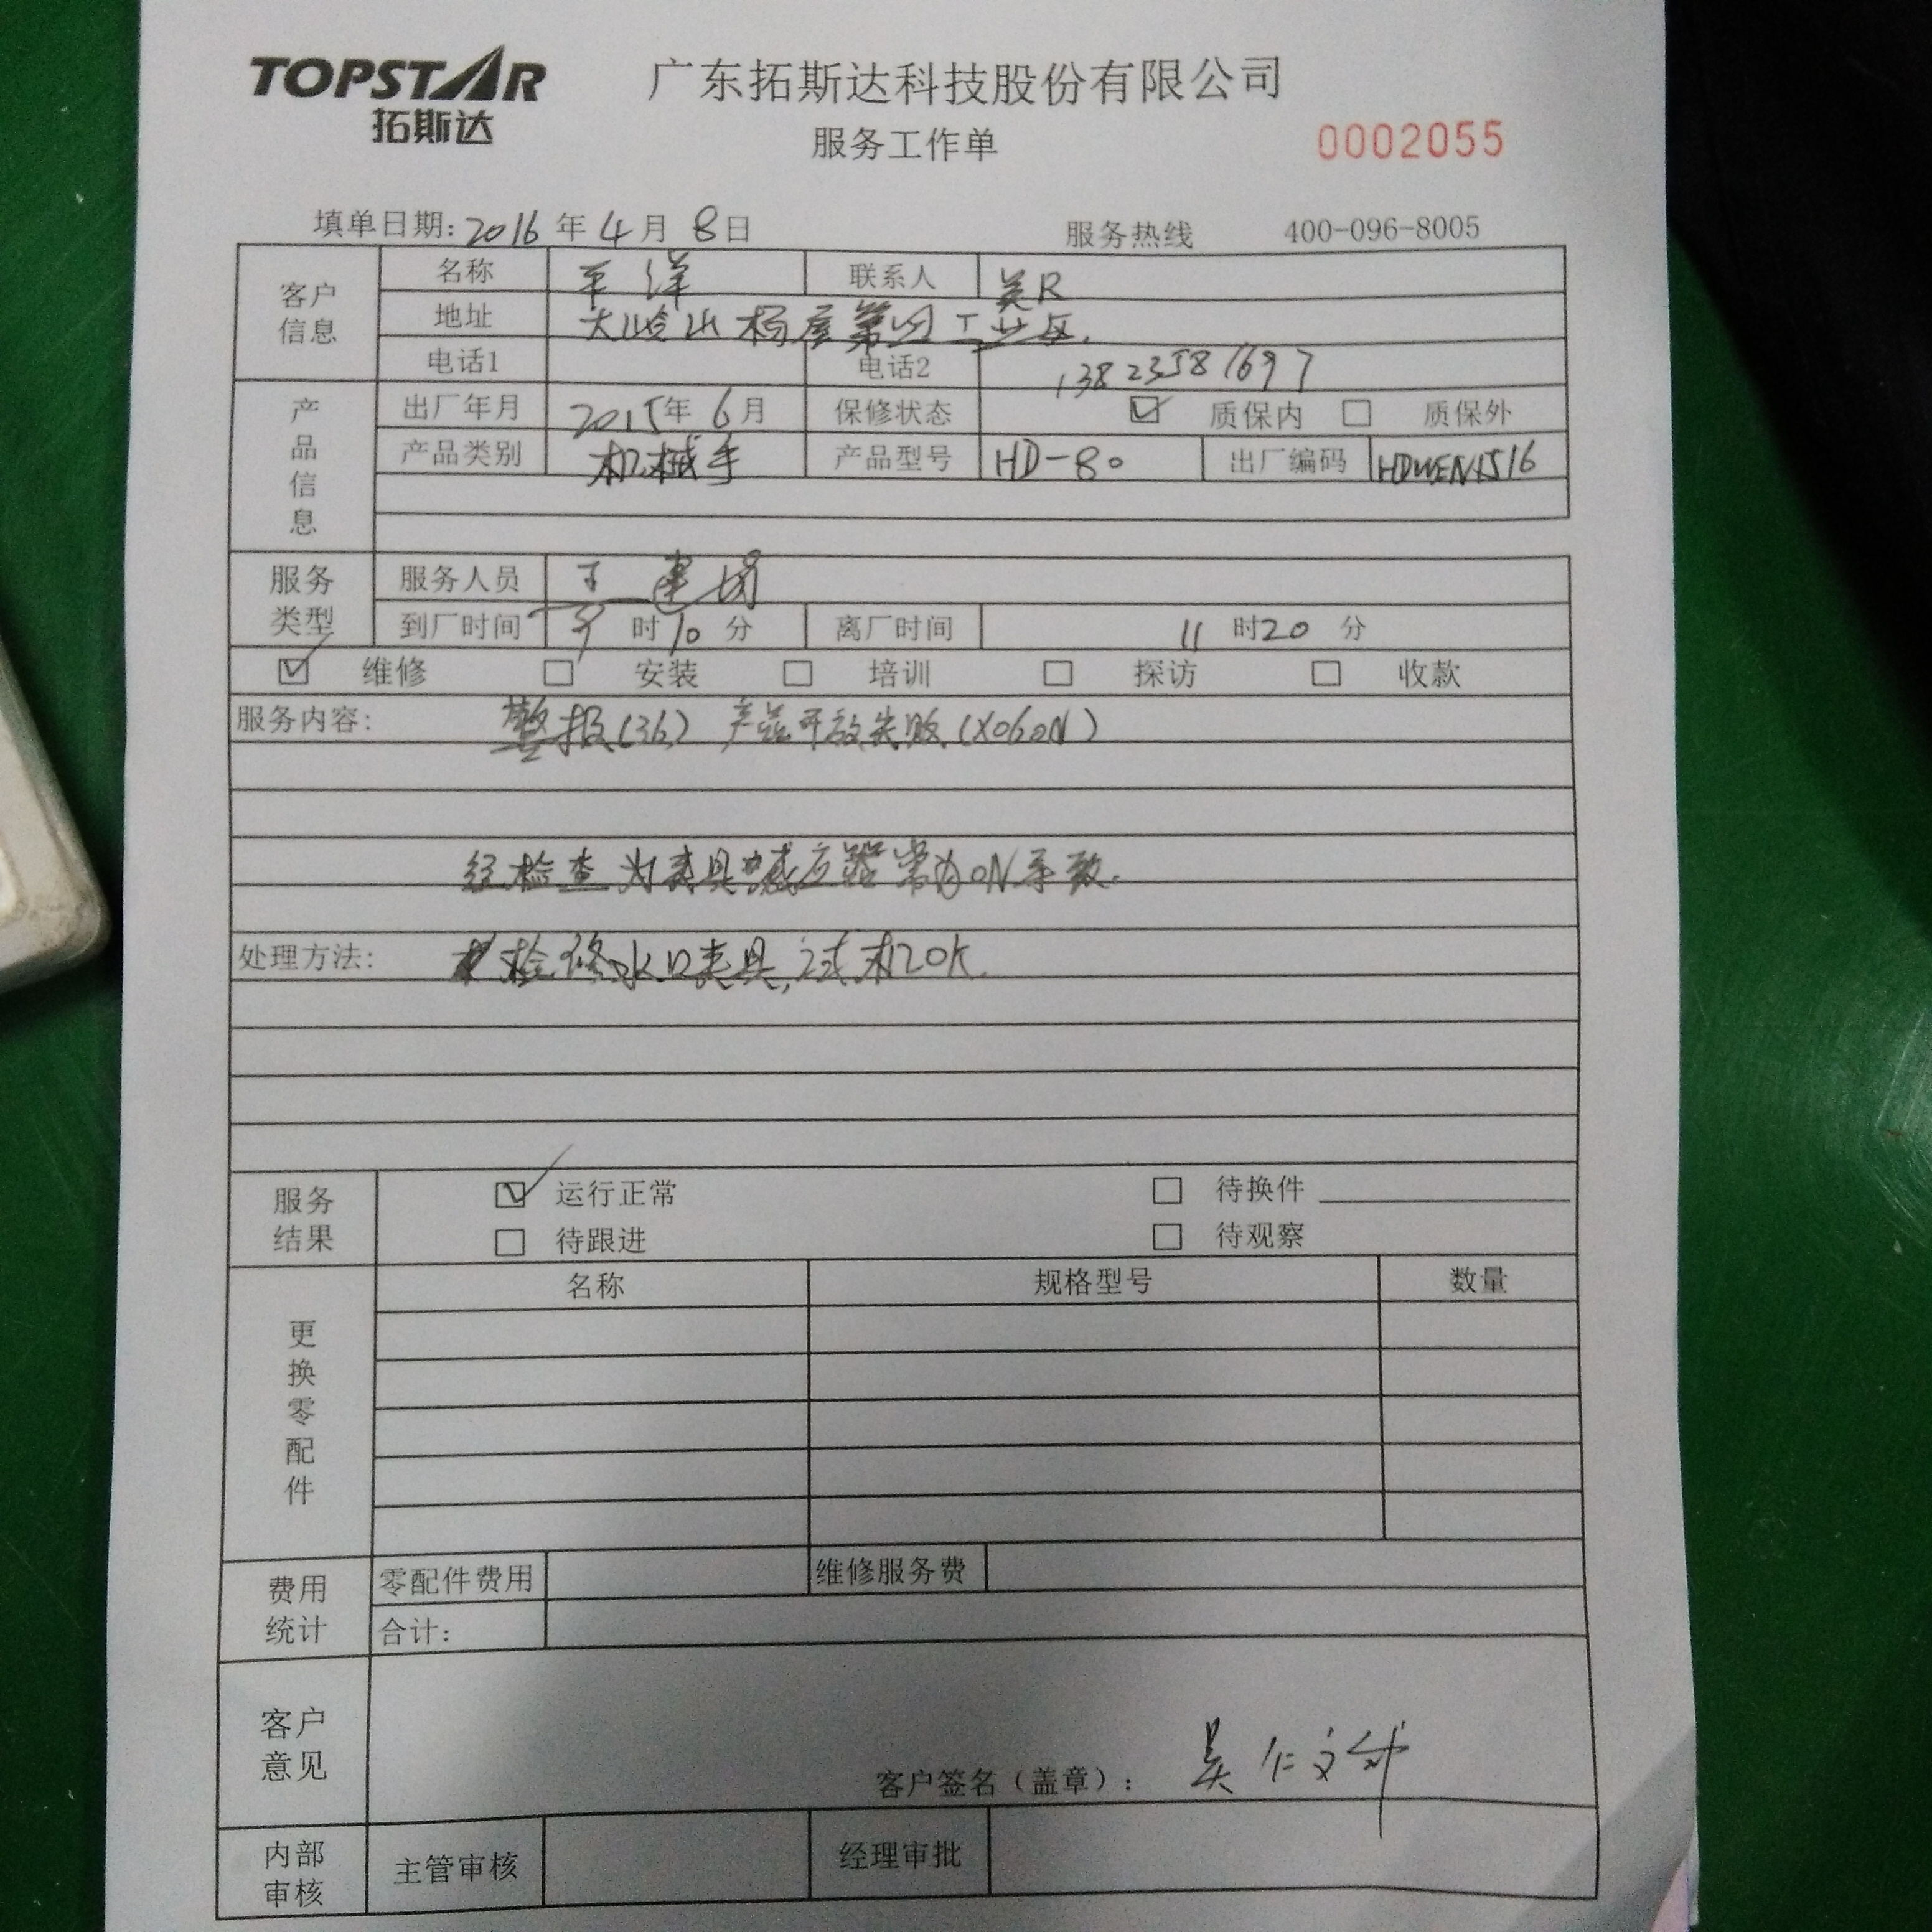 TOPSTAR
拓斯达
广东拓斯达科技股份有限公司
服务工作单
0002055
填单日期: 2016 年 4 月 8 日
服务热线 400-096-8005
客户信息
名称 平洋 联系人 吴R
地址 大岭山杨屋第四工业区.
电话1 电话2 13823581697
产品信息
出厂年月 2015年 6月 保修状态 ☑ 质保内 □ 质保外
产品类别 机械手 产品型号 HD-80 出厂编码
服务类型
服务人员 王建
到厂时间 9 时 10 分 离厂时间 11 时 20 分
☑ 维修 □ 安装 □ 培训 □ 探访 □ 收款
服务内容: 警报(36) 开放失败(X060N)
经检查为夹具感应器常为ON导致.
处理方法: 检修水口夹具,试机20K.
服务结果
☑ 运行正常 □ 待换件
□ 待跟进 □ 待观察
更换零配件
名称 规格型号 数量
费用统计
零配件费用 维修服务费
合计:
客户意见
客户签名(盖章): 吴仁文
内部审核
主管审核 经理审批